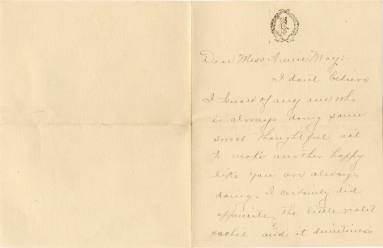 Dear Miss Annie May:
I don't believe
I know of any one who
is always doing some
sweet thoughtful act
to make another happy
like you are always
doing. I certainly did
appreciate the little violet
sachet and it